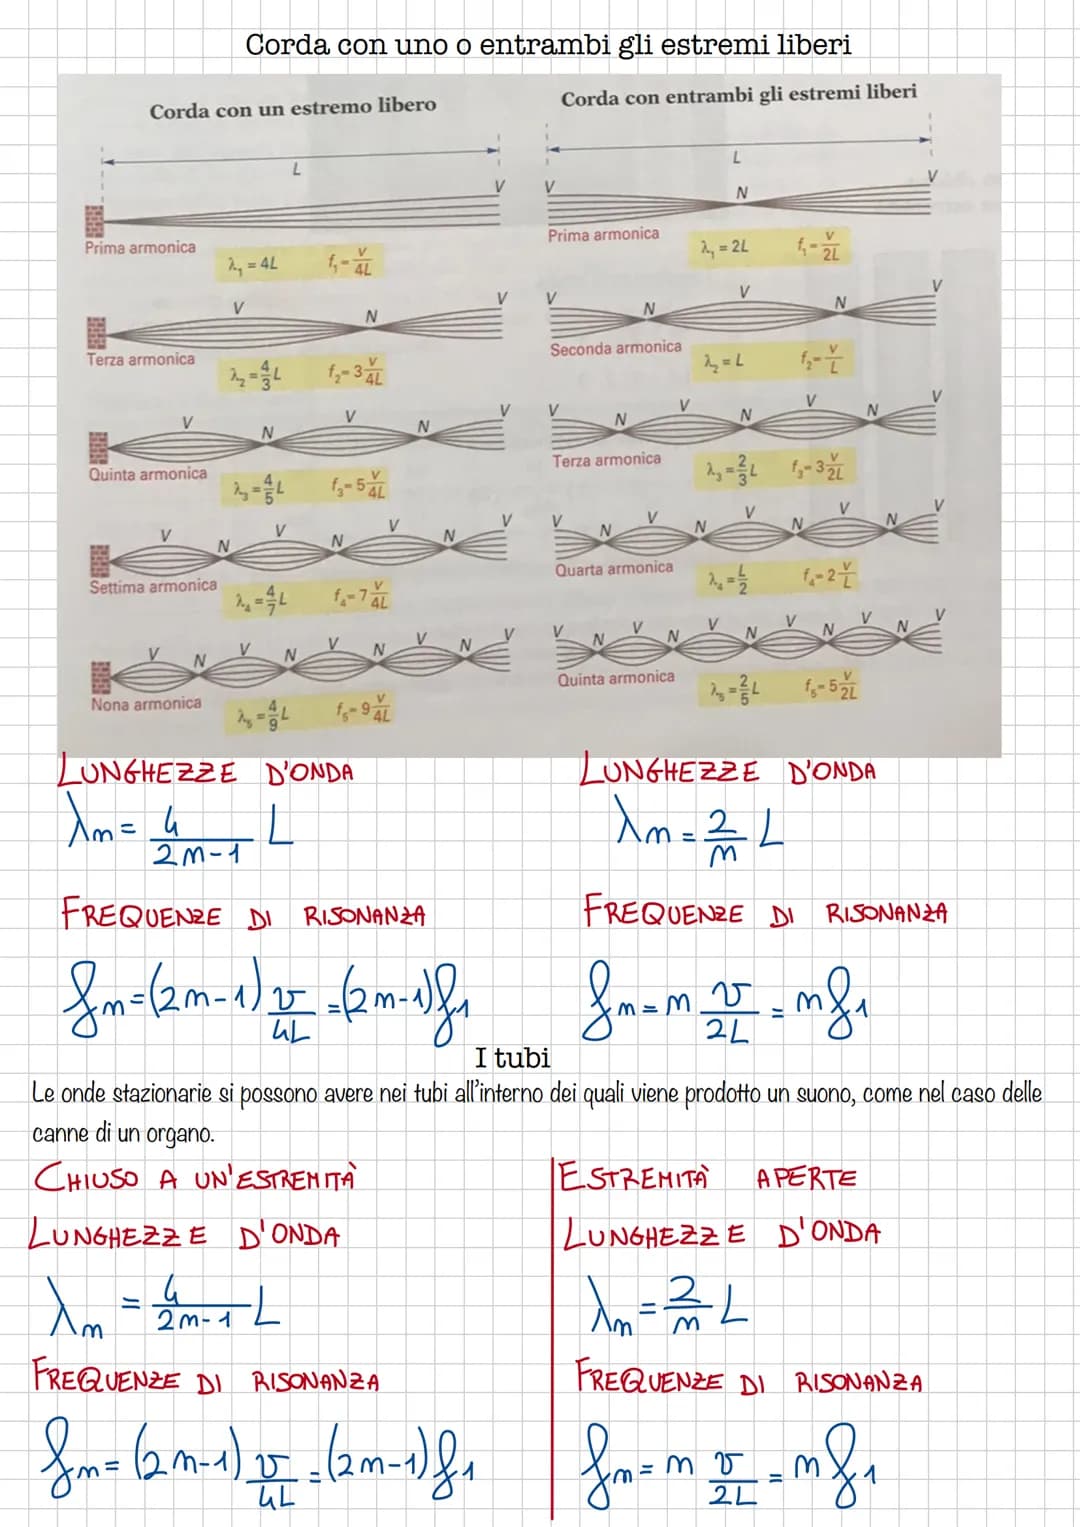 Corda con uno o entrambi gli estremi liberi
Corda con un estremo libero
L
V
Prima armonica
λ₁ = 4L f₁ = v/4L
V N V
Terza armonica
λ₂ = 4/3 L f₂ = 3 v/4L
V N V N V
Quinta armonica
λ₃ = 4/5 L f₃ = 5 v/4L
V N V N V N V
Settima armonica
λ₄ = 4/7 L f₄ = 7 v/4L
V N V N V N V N V
Nona armonica
λ₅ = 4/9 L f₅ = 9 v/4L
Corda con entrambi gli estremi liberi
L
V N V
Prima armonica
λ₁ = 2L f₁ = v/2L
V N V N V
Seconda armonica
λ₂ = L f₂ = v/L
V N V N V N V
Terza armonica
λ₃ = 2/3 L f₃ = 3 v/2L
V N V N V N V N V
Quarta armonica
λ₄ = L/2 f₄ = 2 v/L
V N V N V N V N V N V
Quinta armonica
λ₅ = 2/5 L f₅ = 5 v/2L
LUNGHEZZE D'ONDA
λm = 4/(2m-1) L
FREQUENZE DI RISONANZA
fm = (2m-1) v/4L = (2m-1)f₁
LUNGHEZZE D'ONDA
λm = 2/m L
FREQUENZE DI RISONANZA
fm = m v/2L = mf₁
I tubi
Le onde stazionarie si possono avere nei tubi all'interno dei quali viene prodotto un suono, come nel caso delle
canne di un organo.
CHIUSO A UN'ESTREMITÀ
LUNGHEZZE D'ONDA
λm = 4/(2m-1) L
FREQUENZE DI RISONANZA
fm = (2m-1) v/4L = (2m-1)f₁
ESTREMITÀ APERTE
LUNGHEZZE D'ONDA
λm = 2/m L
FREQUENZE DI RISONANZA
fm = m v/2L = mf₁